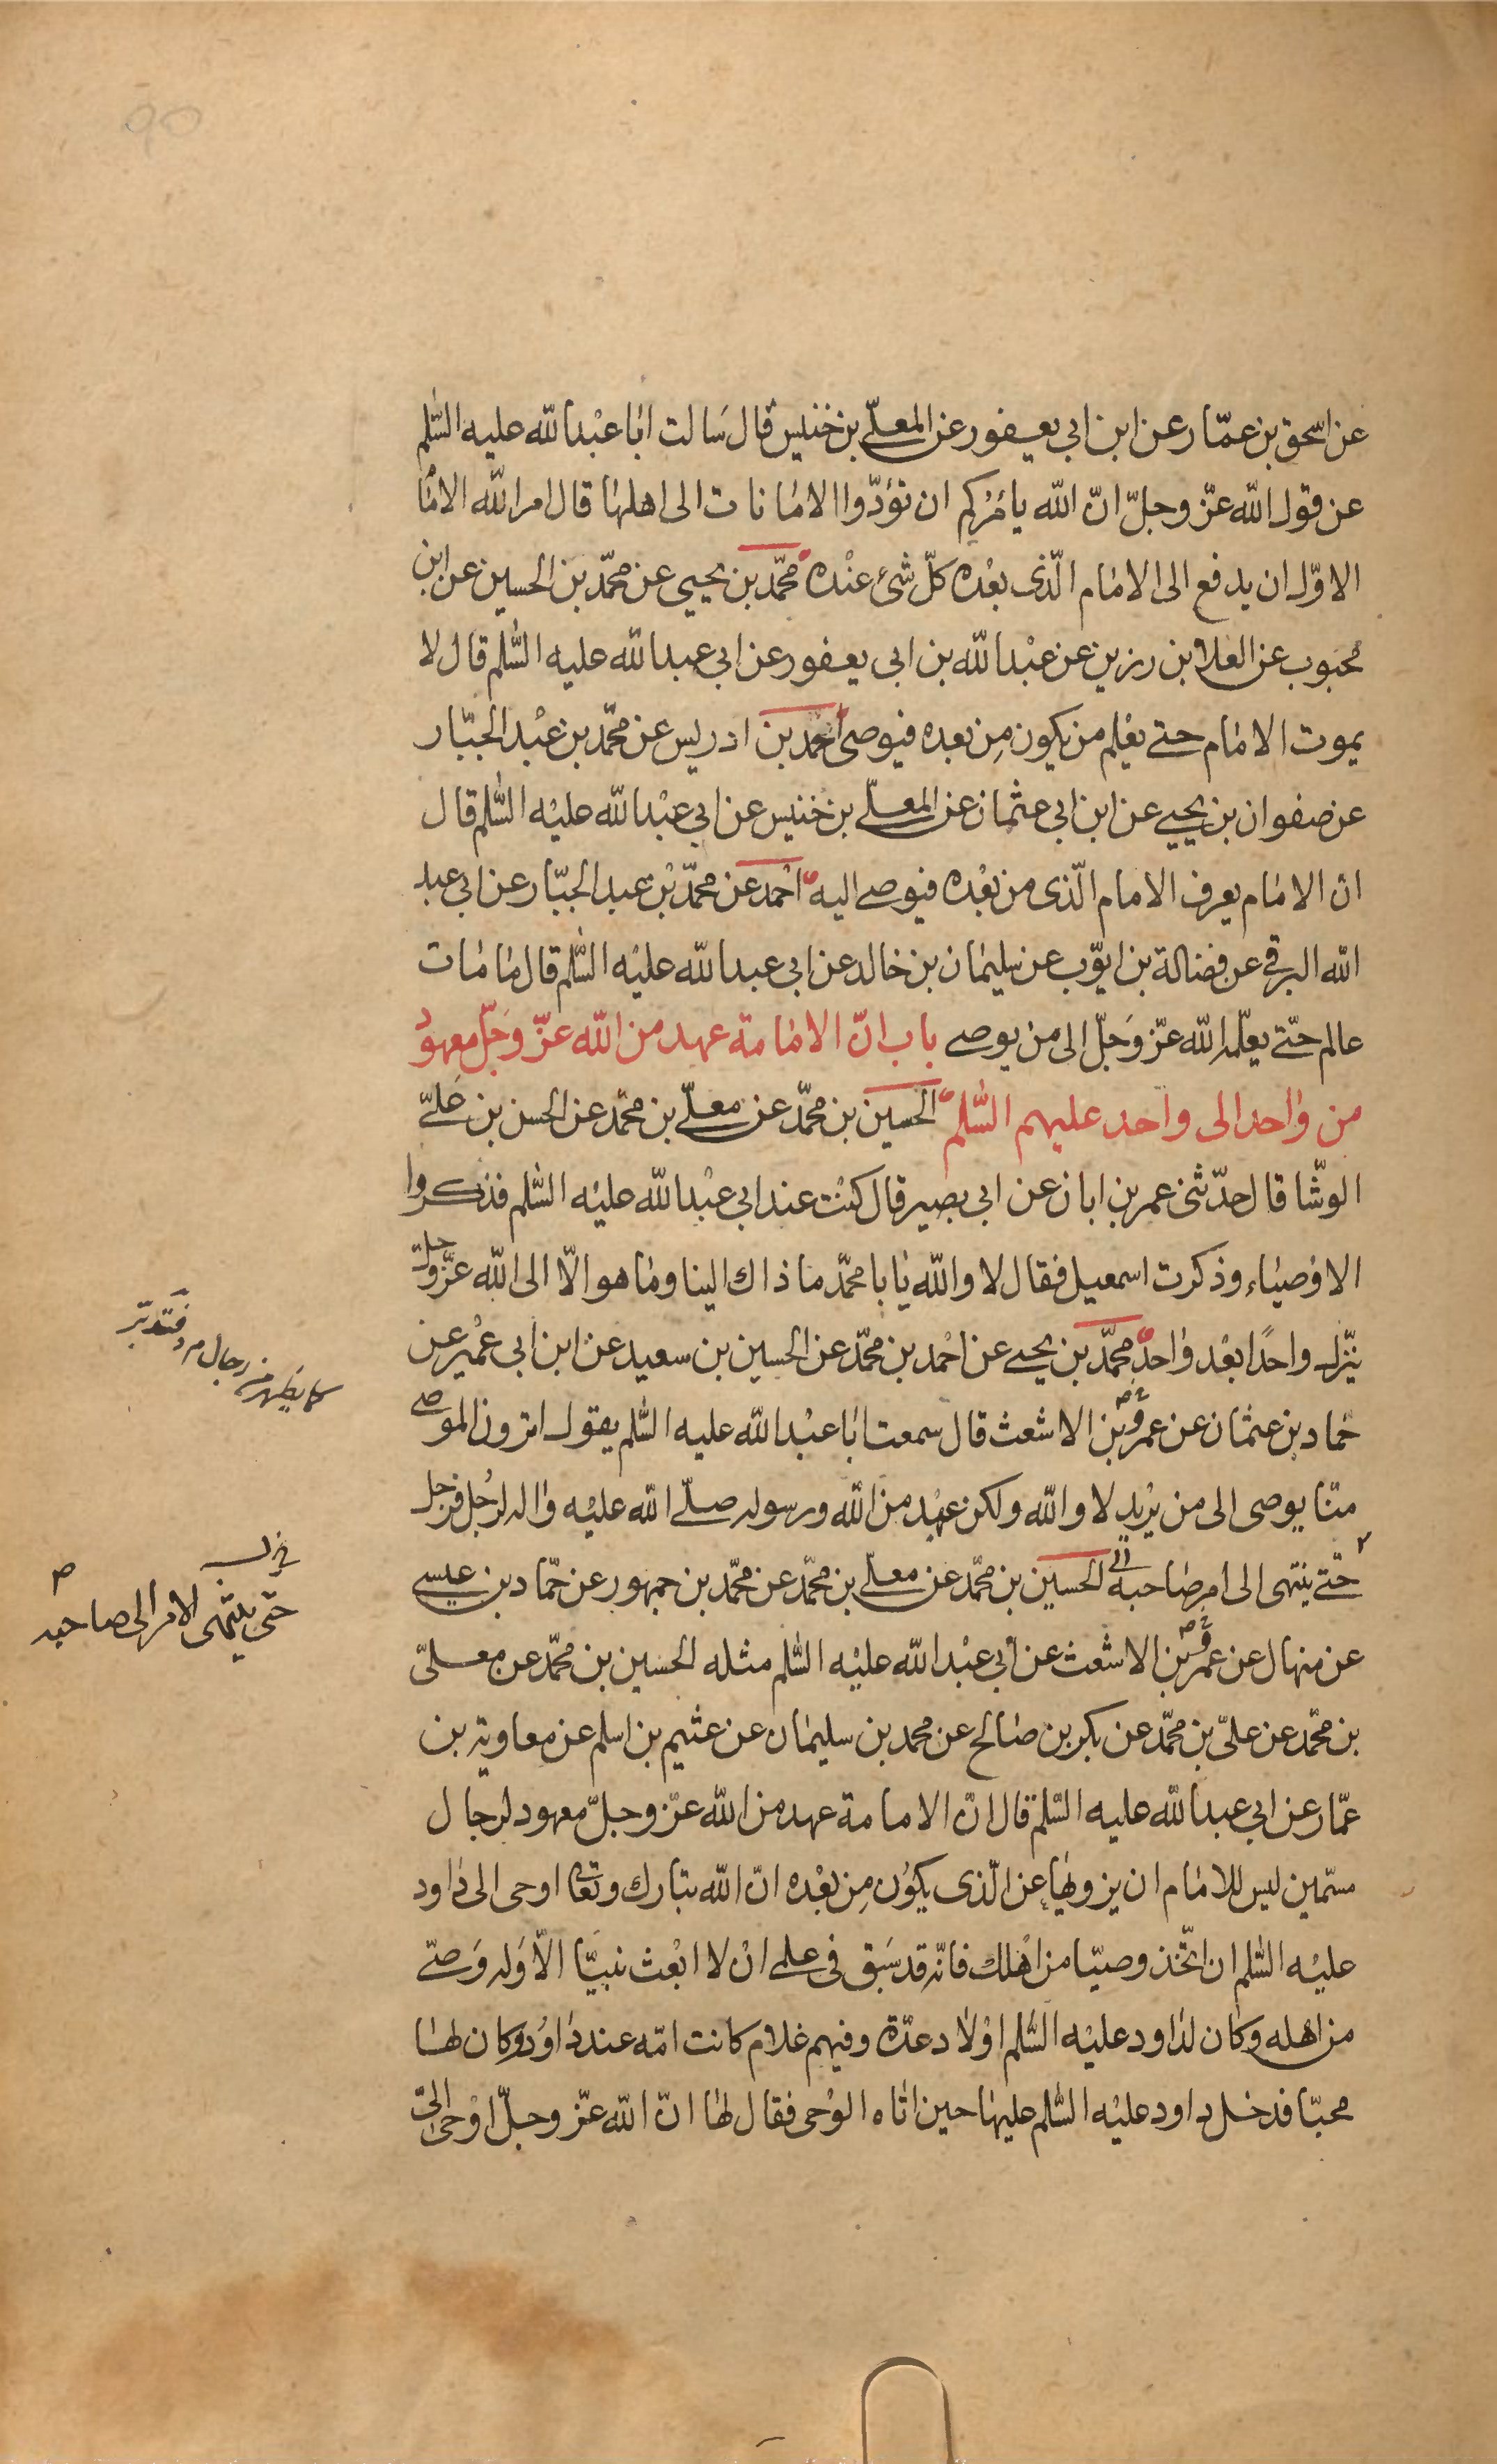 عن اسحق بن عمّار عن ابن ابي يعفور عن المعلّى بن خنيس قال سالت ابا عبد الله عليه السّلم
عن قول الله عزّ وجلّ انّ الله يامركم ان تؤدّوا الامانات الى اهلها قال امر الله الامام
الاوّل ان يدفع الى الامام الّذى بعده كلّ شئ عنده محمّد بن يحيى عن محمّد بن الحسين عن ابن
محبوب عن العلا بن رزين عن عبد الله بن ابى يعفور عن ابي عبد الله عليه السّلم قال لا
يموت الامام حتى يعلم من يكون مِن بعده فيوصى احمد بن ادريس عن محمّد بن عبد الجبّار
عن صفوان بن يحيى عن ابن ابى عثمان عن المعلّى بن خنيس عن ابي عبد الله عليه السّلم قال
انّ الامام يعرف الامام الّذى من بعده فيوصى اليه احمد عن محمّد بن عبد الجبّار عن ابي عبد
الله البرقي عن فضالة بن ايوّب عن سليمان بن خالد عن ابي عبد الله عليه السّلم قال ما مات
عالم حتّى يعلّمه الله عزّ وجلّ الى من يوصى باب انّ الامامة عهد من الله عزّ وجلّ معهود
من واحد الى واحد عليهم السّلم الحسين بن محمّد عن معلّى بن محمّد عن الحسن بن علىّ
الوشّا قال حدّثنى عمر بن ابان عن ابى بصير قال كنت عند ابى عبد الله عليه السّلم فذكروا
الاوصياء وذكرت اسمعيل فقال لا والله يا با محمّد ما ذاك الينا وما هو الّا الى الله عزّ وجلّ
ينزّل واحدًا بعد واحد محمّد بن يحيى عن احمد بن محمّد عن الحسين بن سعيد عن ابن ابى عمير عن
حماد بن عثمان عن عمرو بن الاشعث قال سمعت ابا عبد الله عليه السّلم يقول اترون الموصى
منّا يوصى الى من يريد لا والله ولكن عهد من الله ورسوله صلّى الله عليه واله لرجل فرجل
حتّى ينتهى الى امر صاحبه الحسين بن محمّد عن معلّى بن محمّد عن محمّد بن جمهور عن حمّاد بن عيسى
عن منهال عن عمرو بن الاشعث عن ابى عبد الله عليه السّلم مثله الحسين بن محمّد عن معلّى
بن محمّد عن علىّ بن محمّد عن بكر بن صالح عن محمد بن سليمان عن عثيم بن اسلم عن معاوية بن
عمّار عن ابي عبد الله عليه السّلم قال انّ الامامة عهد من الله عزّ وجلّ معهود لرجال
مسمّين ليس للامام ان يزويها عن الّذى يكون مِن بعده انّ الله تبارك وتعا اوحى الى داود
عليه السّلم ان اتّخذ وصيّا من اهلك فانّه قد سبق فى علمى ان لا ابعث نبيّا الّا وله وصىّ
من اهله وكان لداود عليه السّلم اولاد عدّة وفيهم غلام كانت امّه عند داود وكان لها
محبّا فدخل داود عليه السّلم عليها حين اتاه الوحى فقال لها انّ الله عزّ وجلّ اوحى الىّ
كما يظهر من رجال
فتدبّر
حتى ينتهى الامر الى صاحبه